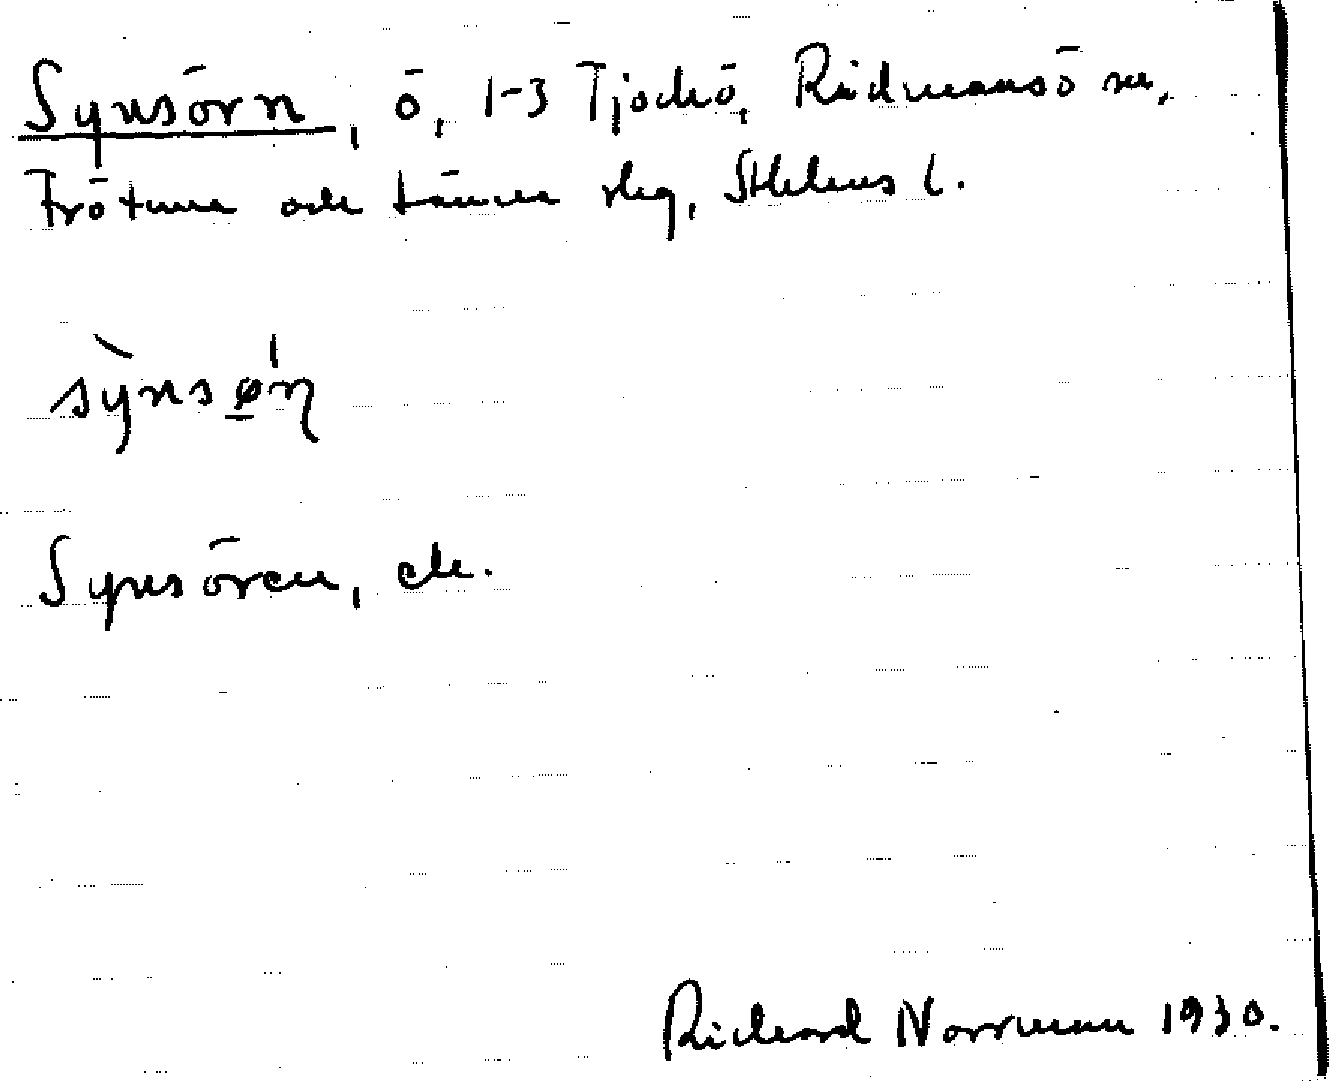 Synsörn, ö, 1-3 Tjockö, Rådmansö sn,
Frötuna och Länna slg, Sthlms l.
sỳnsø̱ˈn̡
Synsören, ek.
Richard Norrman 1930.